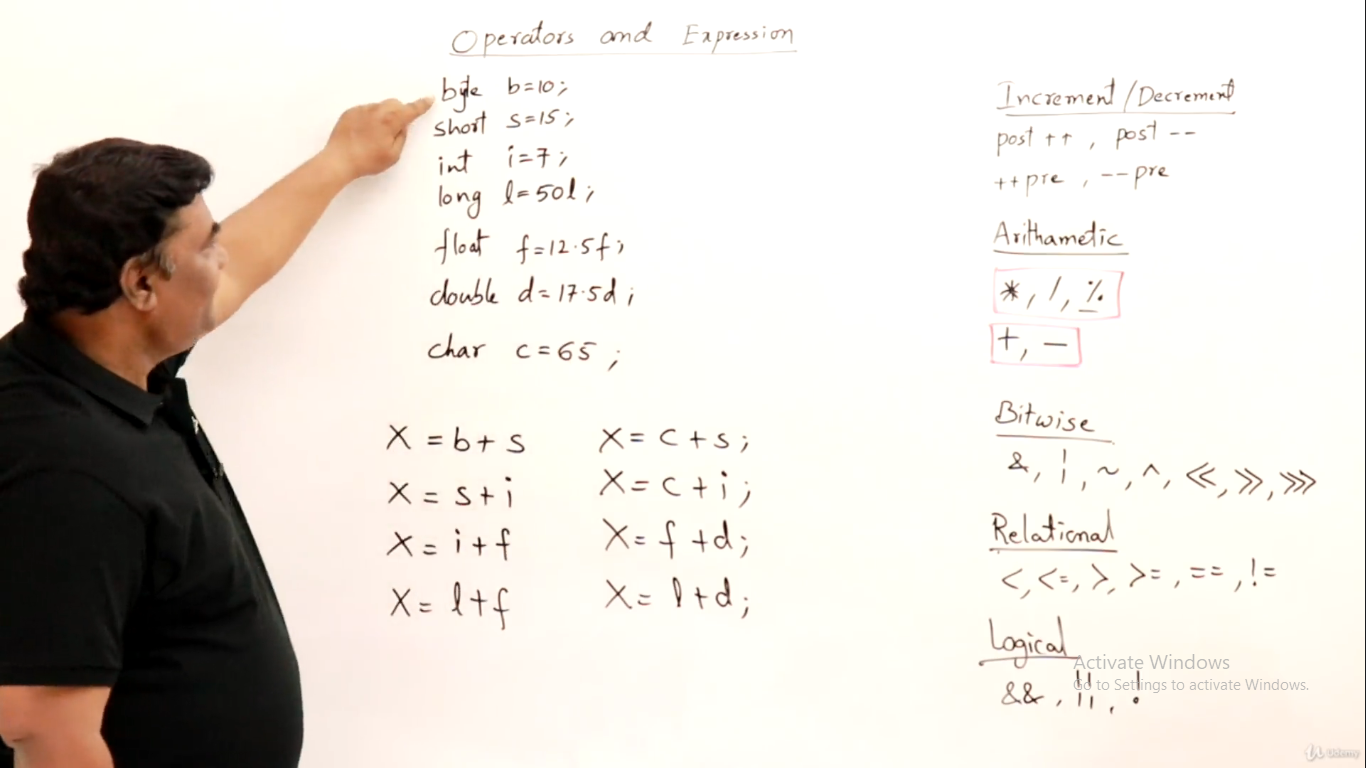 Operators and Expression
byte b=10;
short s=15;
int i=7;
long l=50l;
float f=12.5f;
double d=17.5d;
char c=65;
X=b+s
X=s+i
X=i+f
X=l+f
X=c+s;
X=c+i;
X=f+d;
X=l+d;
Increment/Decrement
post ++, post --
++pre, --pre
Arithametic
*, /, %
+, -
Bitwise
&, |, ~, ^, <<, >>, >>>
Relational
<, <=, >, >=, ==, !=
Logical
&&, ||, !
Activate Windows
Go to Settings to activate Windows.
Udemy